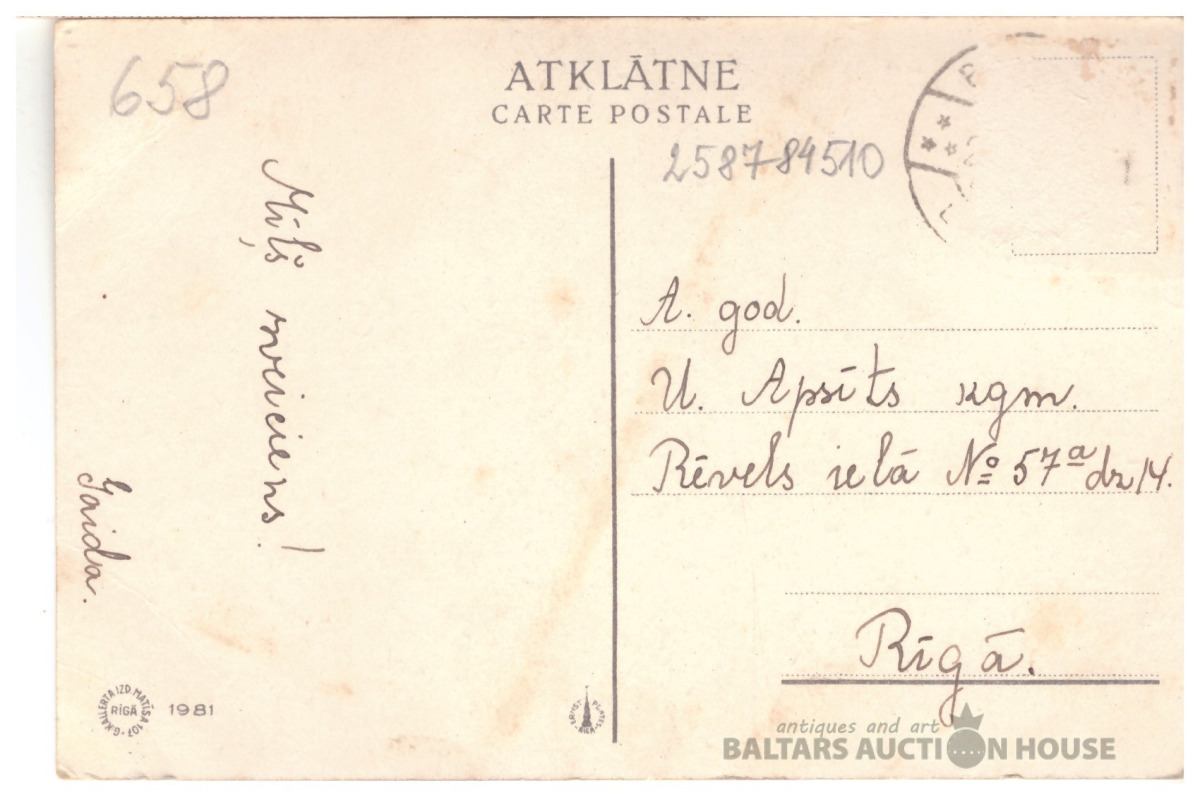 658
ATKLĀTNE
CARTE POSTALE
258784510
Mīļš sveiciens!
Gaida.
A. god.
U. Apsīts kgm.
Rēvels ielā № 57a dz 14.
Rīgā.
G. KALLERTA IZD. MATĪSA 107
RĪGĀ
1981
antiques and art
BALTARS AUCTION HOUSE